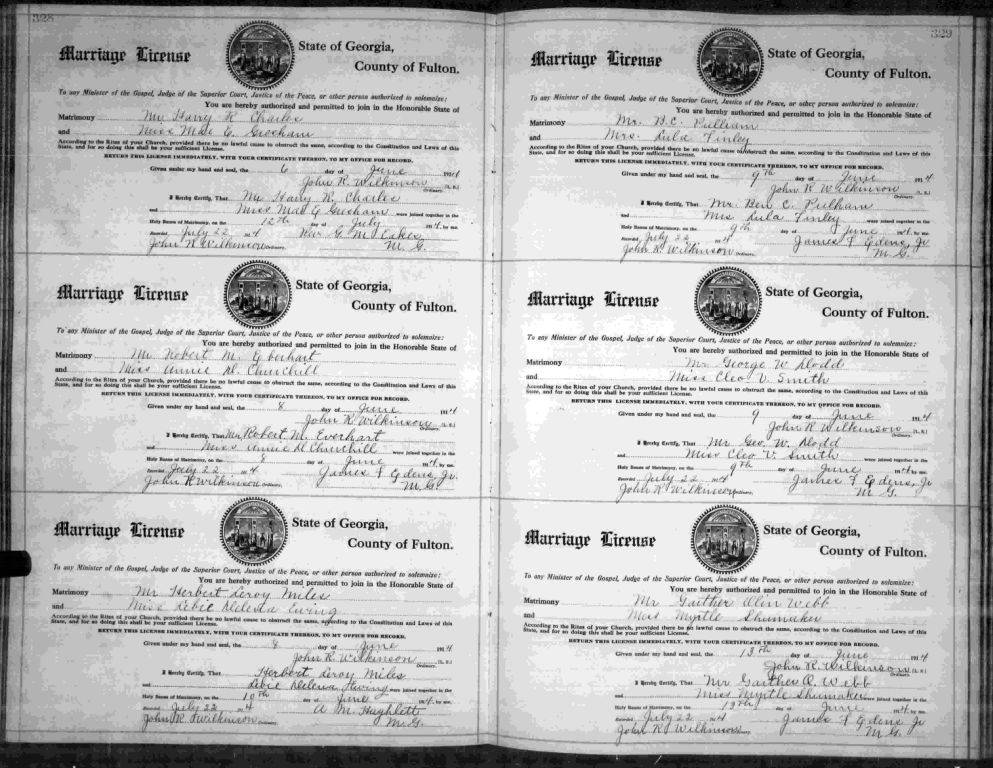 328
Marriage License
State of Georgia,
County of Fulton.
To any Minister of the Gospel, Judge of the Superior Court, Justice of the Peace, or other person authorized to solemnize:
You are hereby authorized and permitted to join in the Honorable State of
Matrimony Mr Harry R Charles
and Miss Mae G. Gresham
According to the Rites of your Church, provided there be no lawful cause to obstruct the same, according to the Constitution and Laws of this
State, and for so doing this shall be your sufficient License.
RETURN THIS LICENSE IMMEDIATELY, WITH YOUR CERTIFICATE THEREON, TO MY OFFICE FOR RECORD.
Given under my hand and seal, the 6 day of June 1914
John R. Wilkinson (L. S.)
Ordinary.
I Hereby Certify, That Mr Harry R. Charles
and Miss Mae G Gresham were joined together in the
Holy Banns of Matrimony, on the 12th day of July 1914, by me.
Recorded July 22 1914 Rev G. M. Eakes
John R Wilkinson Ordinary. M. G.
Marriage License
State of Georgia,
County of Fulton.
To any Minister of the Gospel, Judge of the Superior Court, Justice of the Peace, or other person authorized to solemnize:
You are hereby authorized and permitted to join in the Honorable State of
Matrimony Mr Robert M. Eberhart
and Miss Annie D. Churchill
According to the Rites of your Church, provided there be no lawful cause to obstruct the same, according to the Constitution and Laws of this
State, and for so doing this shall be your sufficient License.
RETURN THIS LICENSE IMMEDIATELY, WITH YOUR CERTIFICATE THEREON, TO MY OFFICE FOR RECORD.
Given under my hand and seal, the 8 day of June 1914
John R. Wilkinson (L. S.)
Ordinary.
I Hereby Certify, That Mr Robert M. Everhart
and Miss Annie D Churchill were joined together in the
Holy Banns of Matrimony, on the 8 day of June 1914, by me.
Recorded July 22 1914 James F Edens, Jr.
John R Wilkinson Ordinary. M. G.
Marriage License
State of Georgia,
County of Fulton.
To any Minister of the Gospel, Judge of the Superior Court, Justice of the Peace, or other person authorized to solemnize:
You are hereby authorized and permitted to join in the Honorable State of
Matrimony Mr Herbert Leroy Miles
and Miss Ewing
According to the Rites of your Church, provided there be no lawful cause to obstruct the same, according to the Constitution and Laws of this
State, and for so doing this shall be your sufficient License.
RETURN THIS LICENSE IMMEDIATELY, WITH YOUR CERTIFICATE THEREON, TO MY OFFICE FOR RECORD.
Given under my hand and seal, the 8 day of June 1914
John R. Wilkinson (L. S.)
Ordinary.
I Hereby Certify, That Herbert Leroy Miles
and were joined together in the
Holy Banns of Matrimony, on the 10th day of June 1914, by me.
Recorded July 22 1914 A M. Hughlett
John R. Wilkinson Ordinary. M. G.
329
Marriage License
State of Georgia,
County of Fulton.
To any Minister of the Gospel, Judge of the Superior Court, Justice of the Peace, or other person authorized to solemnize:
You are hereby authorized and permitted to join in the Honorable State of
Matrimony Mr. B.C. Pulliam
and Mrs. Lula Finley
According to the Rites of your Church, provided there be no lawful cause to obstruct the same, according to the Constitution and Laws of this
State, and for so doing this shall be your sufficient License.
RETURN THIS LICENSE IMMEDIATELY, WITH YOUR CERTIFICATE THEREON, TO MY OFFICE FOR RECORD.
Given under my hand and seal, the 9th day of June 1914
John R Wilkinson (L. S.)
Ordinary.
I Hereby Certify, That Mr. Ben C. Pulham
and Mrs Lula Finley were joined together in the
Holy Banns of Matrimony, on the 9th day of June 1914, by me.
Recorded July 22 1914 James F Edens, Jr
John R. Wilkinson Ordinary. M. G.
Marriage License
State of Georgia,
County of Fulton.
To any Minister of the Gospel, Judge of the Superior Court, Justice of the Peace, or other person authorized to solemnize:
You are hereby authorized and permitted to join in the Honorable State of
Matrimony Mr George W Dodd
and Miss Cleo V. Smith
According to the Rites of your Church, provided there be no lawful cause to obstruct the same, according to the Constitution and Laws of this
State, and for so doing this shall be your sufficient License.
RETURN THIS LICENSE IMMEDIATELY, WITH YOUR CERTIFICATE THEREON, TO MY OFFICE FOR RECORD.
Given under my hand and seal, the 9 day of June 1914
John R Wilkinson (L. S.)
Ordinary.
I Hereby Certify, That Mr Geo. W. Dodd
and Miss Cleo V. Smith were joined together in the
Holy Banns of Matrimony, on the 9th day of June 1914, by me.
Recorded July 22 1914 James F Edens, Jr
John R Wilkinson Ordinary. M. G.
Marriage License
State of Georgia,
County of Fulton.
To any Minister of the Gospel, Judge of the Superior Court, Justice of the Peace, or other person authorized to solemnize:
You are hereby authorized and permitted to join in the Honorable State of
Matrimony Mr Gaither Olin Webb
and Miss Myrtle Shumaker
According to the Rites of your Church, provided there be no lawful cause to obstruct the same, according to the Constitution and Laws of this
State, and for so doing this shall be your sufficient License.
RETURN THIS LICENSE IMMEDIATELY, WITH YOUR CERTIFICATE THEREON, TO MY OFFICE FOR RECORD.
Given under my hand and seal, the 13th day of June 1914
John R. Wilkinson (L. S.)
Ordinary.
I Hereby Certify, That Mr Gaither O. Webb
and Miss Myrtle Shumaker were joined together in the
Holy Banns of Matrimony, on the 13th day of June 1914, by me.
Recorded July 22 1914 James F Edens Jr
John R. Wilkinson Ordinary. M. G.